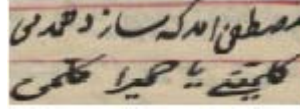 مصطفی آمد که سازد همدمی
کلمینی یا حمیرا کلمی